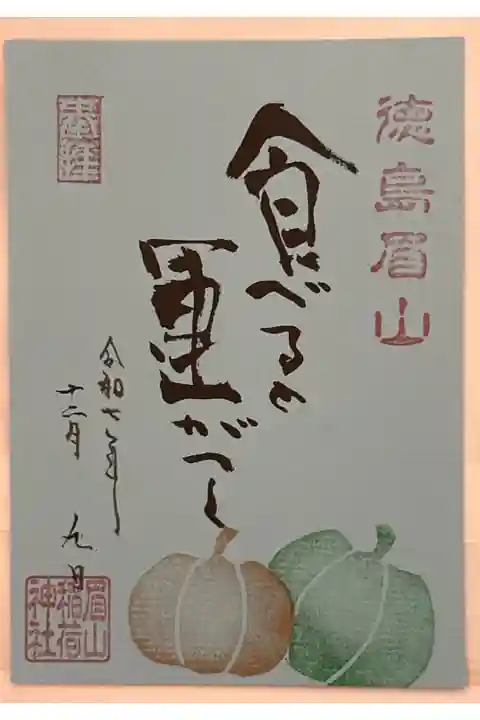 徳島眉山
食べると
運がつく
奉拝
令和七年
十二月 九日
眉山
稲荷
神社